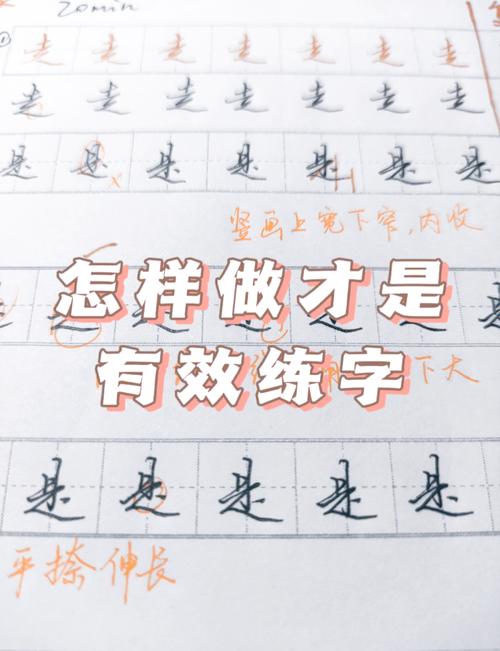 20min
①
走 走 走 走 走 走 走
走 走 走 走 走 走 走
是 是 是 是 是 是 是
竖画上宽下窄,内收
怎样做才是
有效练字
下大
是 是 是 是 是
平捺伸长